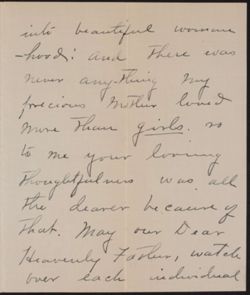 into beautiful woman
-hood: and there was
never any-thing my
precious Mother loved
more than girls. so
to me your loving
thoughtfulness was all
the dearer because of
that. May our Dear
Heavenly Father, watch
over each individual